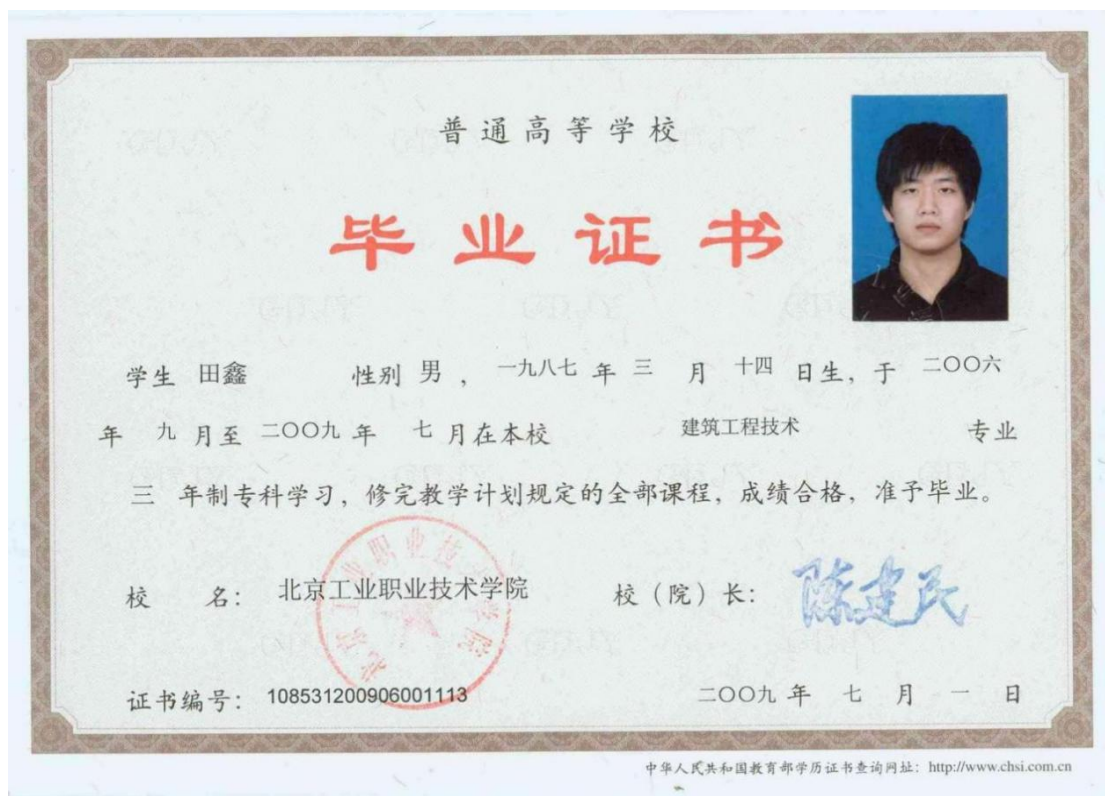 普通高等学校
毕业证书
学生 田鑫 性别 男 ， 一九八七 年 三 月 十四 日生，于 二〇〇六
年 九 月至 二〇〇九 年 七 月在本校 建筑工程技术 专业
三 年制专科学习，修完教学计划规定的全部课程，成绩合格，准予毕业。
北京工业职业技术学院
校 名： 北京工业职业技术学院 校（院）长： 陈建民
证书编号： 108531200906001113 二〇〇九 年 七 月 一 日
中华人民共和国教育部学历证书查询网址：http://www.chsi.com.cn